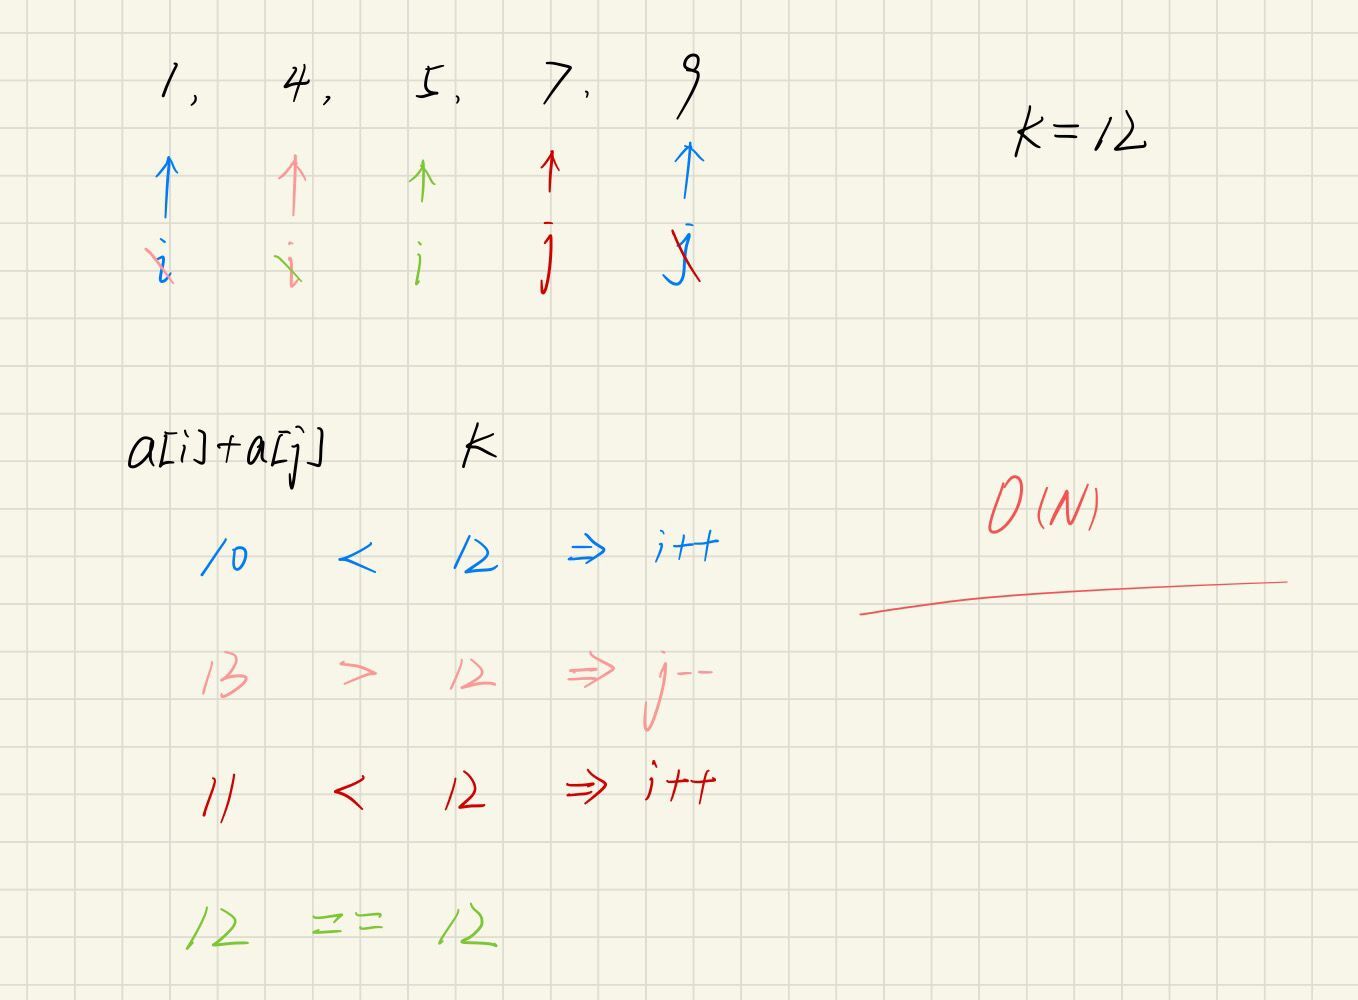 1, 4, 5, 7, 9
k=12
i i i j j
a[i]+a[j] k
O(N)
10 < 12 ⇒ i++
13 > 12 ⇒ j--
11 < 12 ⇒ i++
12 == 12